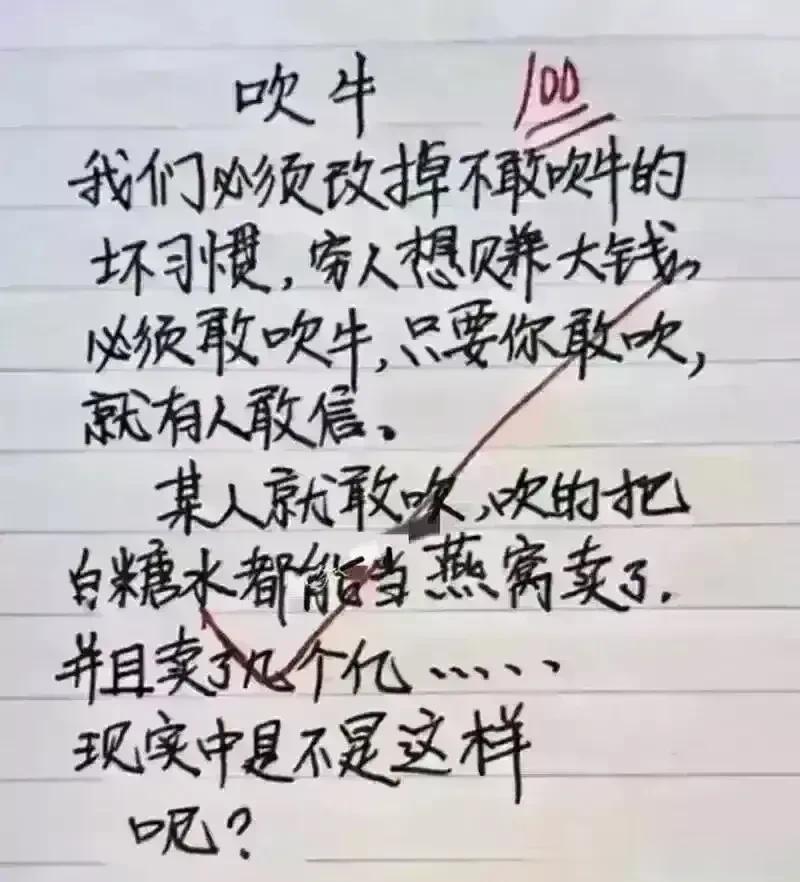 吹牛 100
我们必须改掉不敢吹牛的
坏习惯,穷人想赚大钱。
必须敢吹牛,只要你敢吹,
就有人敢信。
某人就敢吹,吹的把
白糖水都能当燕窝卖了.
并且卖了几个亿……
现实中是不是这样
呢?